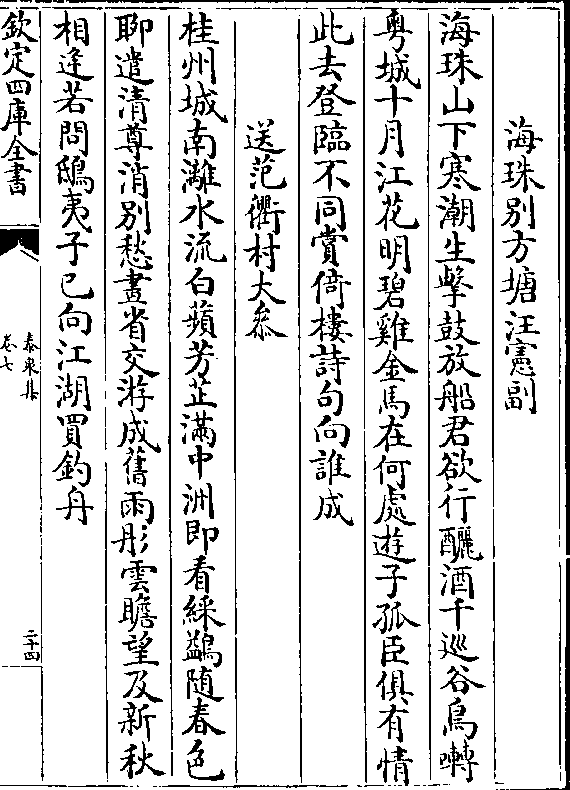 海珠别方塘汪憲副
海珠山下寒潮生擊鼓放船君欲行釃酒千巡谷鳥囀
粤城十月江花明碧雞金馬在何處遊子孤臣俱有情
此去登臨不同賞倚樓詩句向誰成
送范衢村大叅
桂州城南灕水流白蘋芳芷滿中洲即看綵鷁随春色
聊遣清尊消别愁畫省交游成舊雨彤雲瞻望及新秋
相逢若問鴟夷子已向江湖買釣舟
欽定四庫全書
泰泉集
卷七
二十四